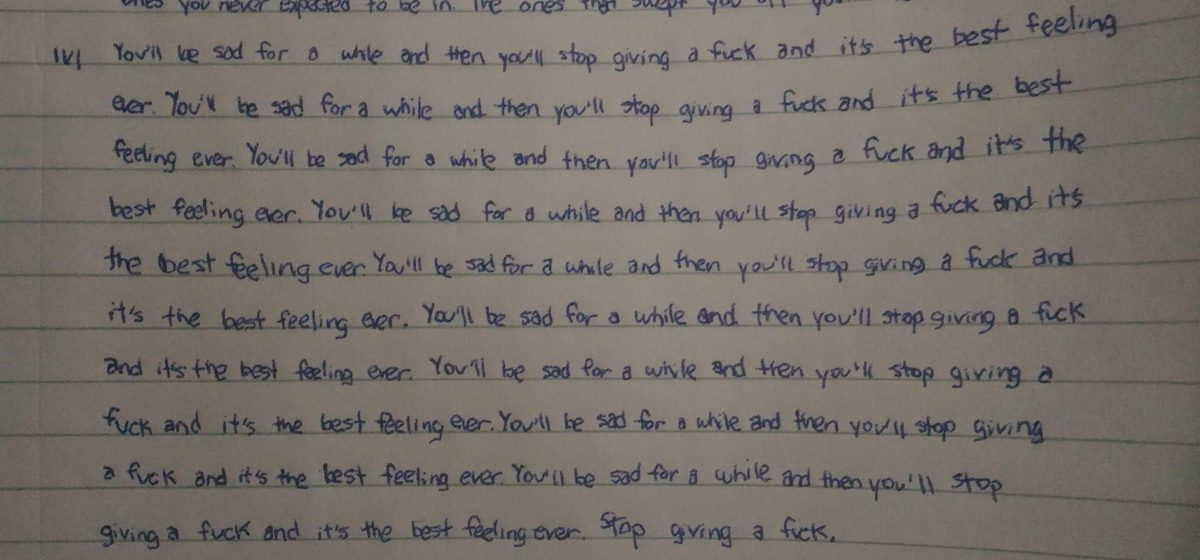 ones you never expected to be in. The ones that swept you off
IV| You'll be sad for a while and then you'll stop giving a fuck and it's the best feeling
ever. You'll be sad for a while and then you'll stop giving a fuck and it's the best
feeling ever. You'll be sad for a while and then you'll stop giving a fuck and it's the
best feeling ever. You'll be sad for a while and then you'll stop giving a fuck and it's
the best feeling ever. You'll be sad for a while and then you'll stop giving a fuck and
it's the best feeling ever. You'll be sad for a while and then you'll stop giving a fuck
and it's the best feeling ever. You'll be sad for a while and then you'll stop giving a
fuck and it's the best feeling ever. You'll be sad for a while and then you'll stop giving
a fuck and it's the best feeling ever. You'll be sad for a while and then you'll stop
giving a fuck and it's the best feeling ever. Stop giving a fuck.